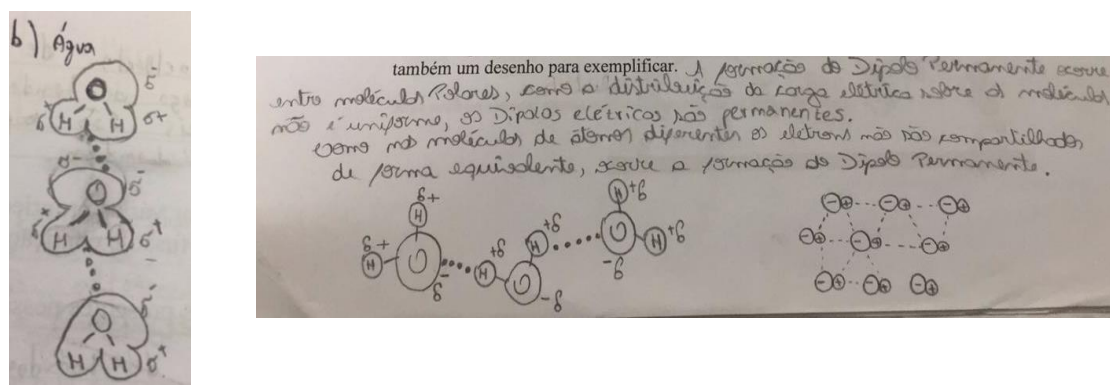 b) Água
δ-
O
δ+ H H δ+
δ-
O δ-
δ+ H H δ+
δ-
O
H H δ+
também um desenho para exemplificar. A formação do Dipolo Permanente ocorre
entre moléculas Polares, como a distribuição da carga elétrica sobre a molécula
não é uniforme, os Dipolos elétricos são permanentes.
Como nas moléculas de átomos diferentes os elétrons não são compartilhados
de forma equivalente, ocorre a formação do Dipolo Permanente.
δ+ H +δ
δ+ H +δ H +δ
H O - H O H +δ
δ O -δ -δ
- + - + - +
- + - + - +
- + - + - +